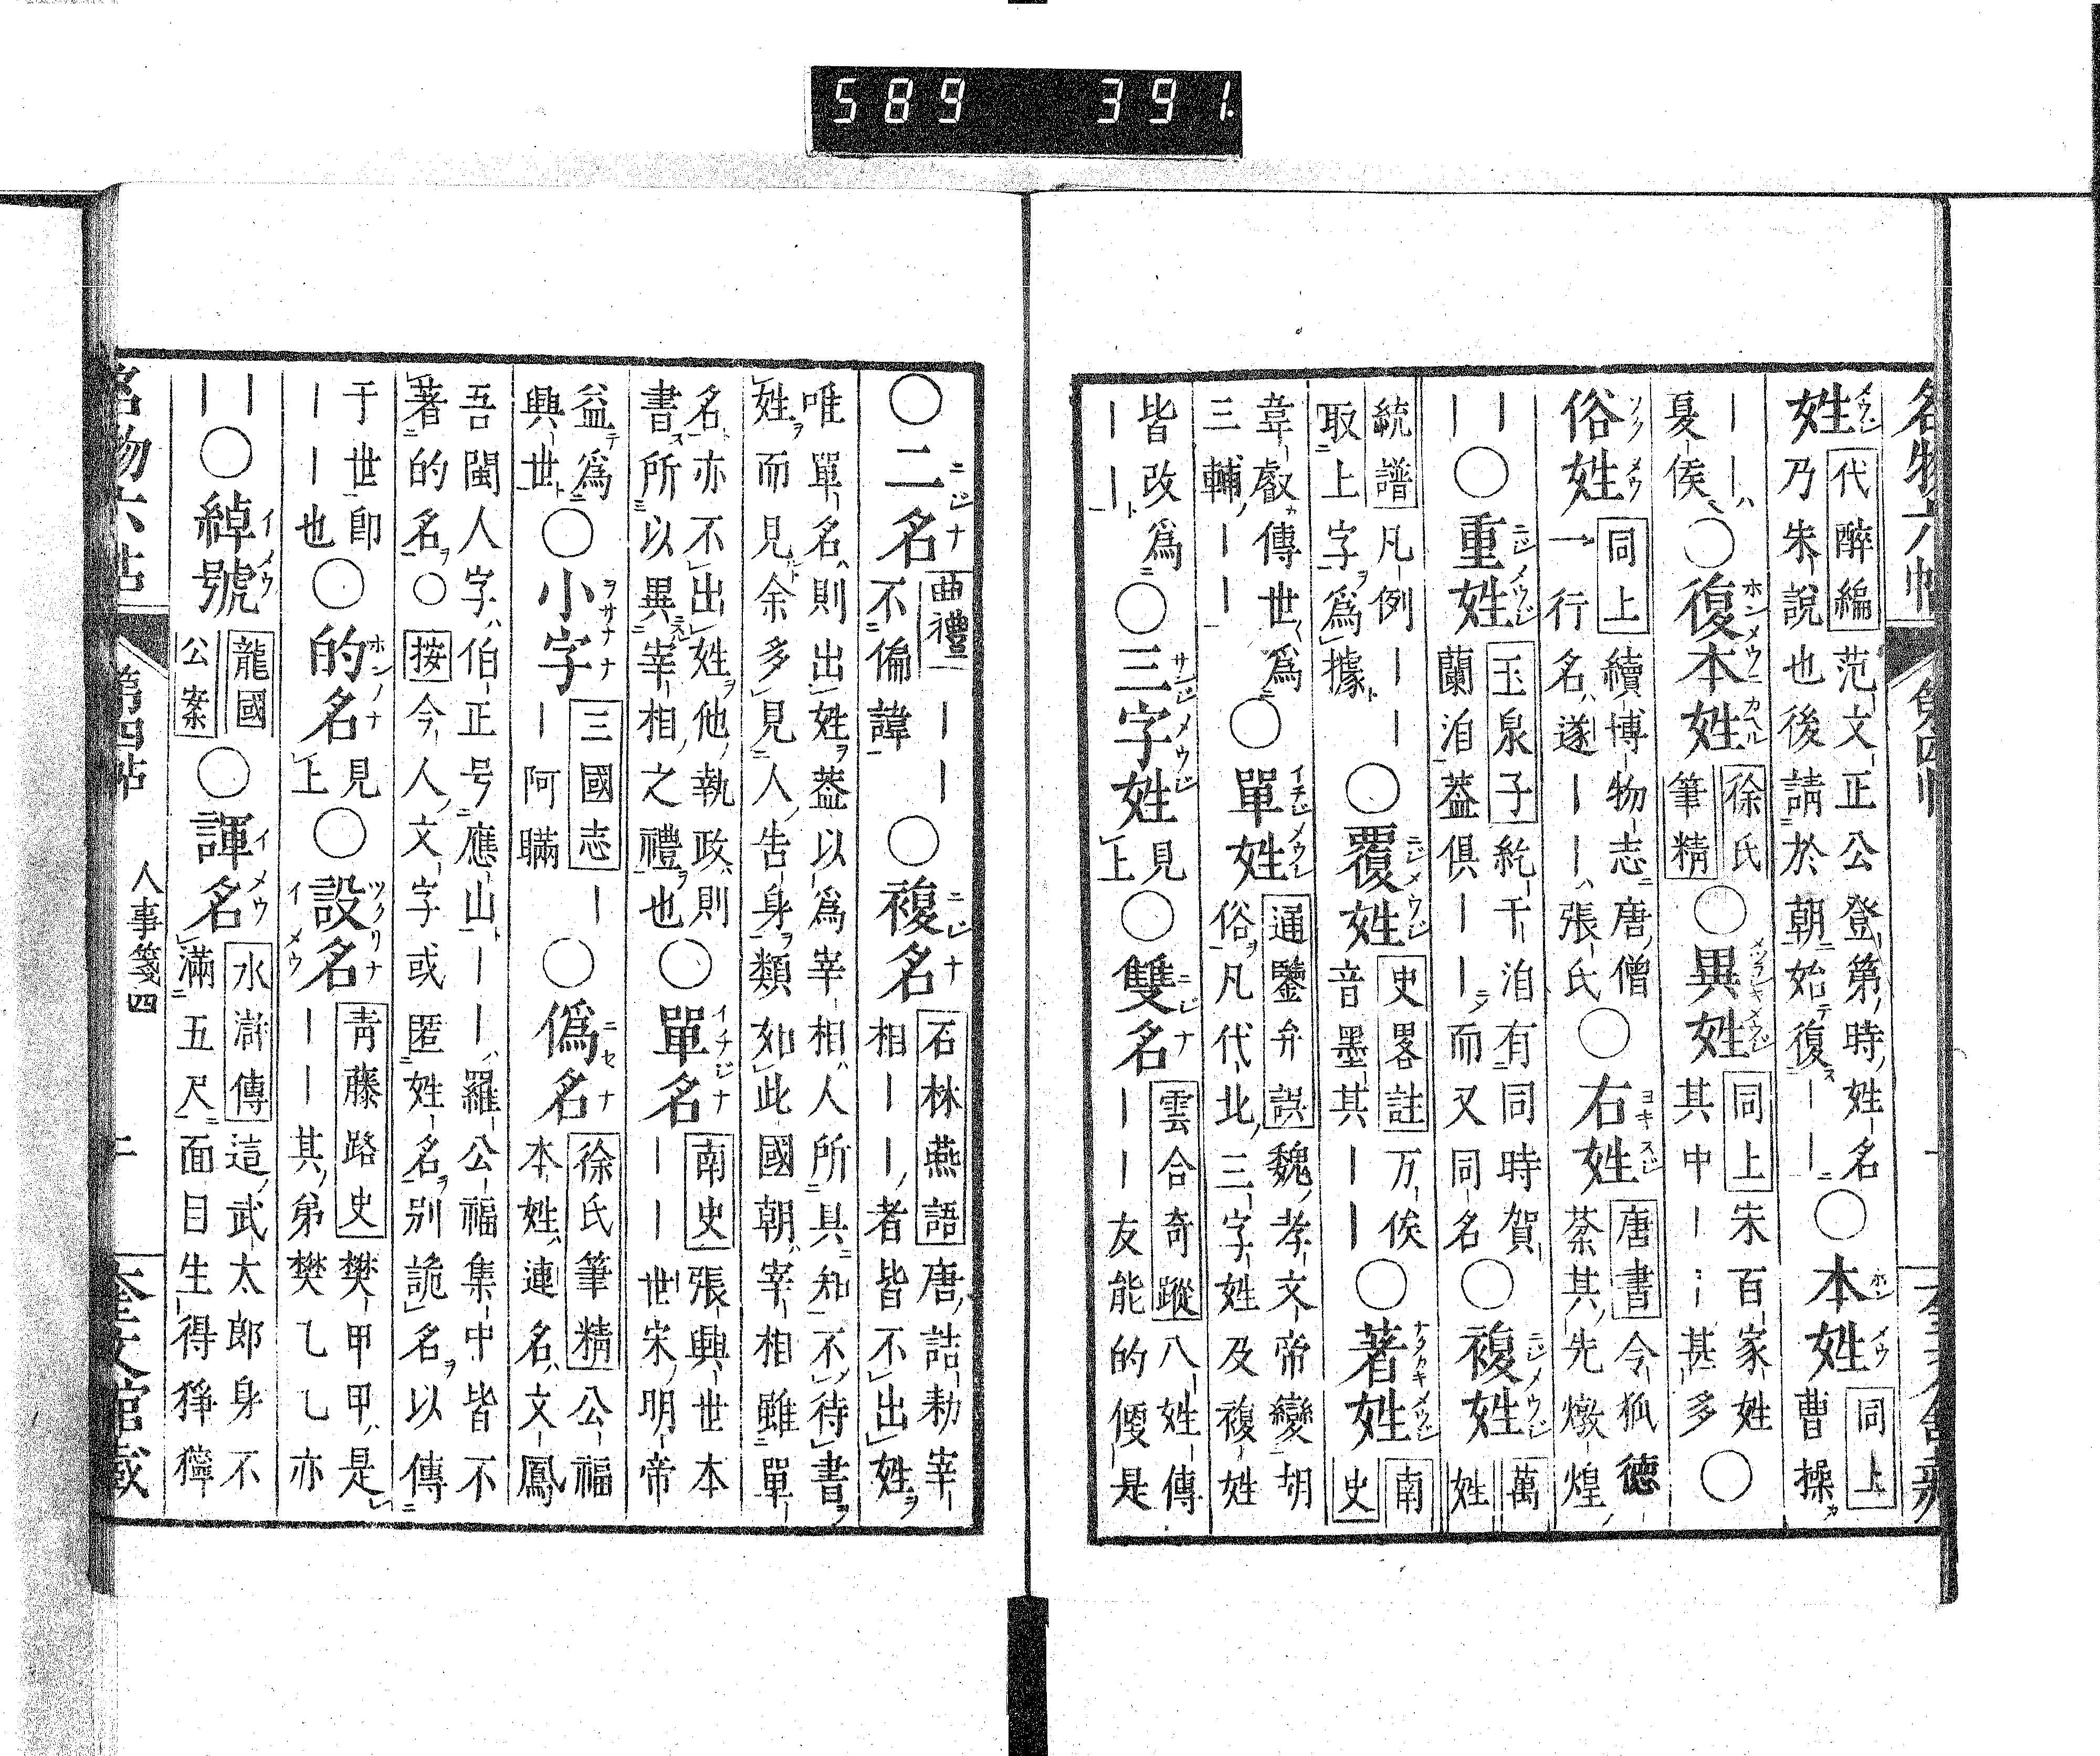 589 391.
名物六帖 第四帖
姓 代醉編 范文正公登第時姓名
乃朱説也後請於朝始復——
○本姓 同上 曹操
——
夏侯
○復本姓 徐氏
筆精
○異姓 同上 朱百家姓
其中——甚多
○
俗姓 同上 續博物志唐僧
一行名遂——張氏
○右姓 唐書 令狐德
棻其先燉煌
——
○重姓 玉泉子 紇干洎有同時賀
蘭洎葢俱——而又同名
○複姓 萬
姓
統譜 凡例——
取上字爲據
○覆姓 史畧註 万俟
音墨其——
○著姓 南
史
韋叡傳世爲
三輔——
○單姓 通鑒弁誤 魏孝文帝變胡
俗凡代北三字姓及複姓
皆改爲
———
○三字姓 見
上
○雙名 雲合奇蹤 八姓傳
——友能的便是
○二名 曲禮
不偏諱——
○複名 石林燕語 唐誥勅宰
相——者皆不出姓
唯單名則出姓葢以爲宰相人所具知不待書
姓而見余多見人告身類如此國朝宰相雖單
名亦不出姓他執政則
書所以異宰相之禮也
○單名 南史 張興世本
——世宋明帝
益爲
興世
○小字 三國志 —
—阿瞞
○僞名 徐氏筆精 公福
本姓連名文鳳
吾閩人字伯正号應山——羅公福集中皆不
著的名○按今人文字或匿姓名別詭名以傳
于世卽
——也
○的名 見
上
○設名 青藤路史 樊甲甲是
——其弟樊乙乙亦
——
○綽號 龍國
公案
○諢名 水滸傳 這武太郎身不
滿五尺面目生得猙獰
名物六帖 第四帖 人事箋四 奎文館藏